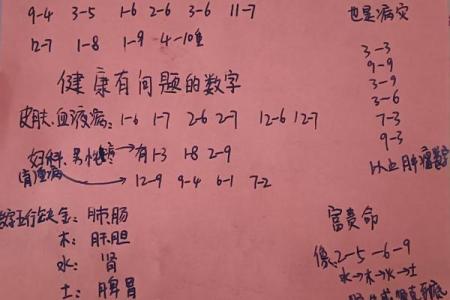 9-4 3-5 1-6 2-6 3-6 11-7
12-7 1-8 1-9 4-10重
健康有问题的数字
皮肤、血液病: 1-6 1-7 2-6 2-7 12-6 12-7
妇科、男性病→有1-3 1-8 2-9
肾湿病→12-9 9-4 6-1 7-2
数字五行缺金: 肺.肠
木: 肝.胆
水: 肾
土: 脾胃
也是病灾
3-3
9-9
3-9
3-6
7-3
9-3
以上肿瘤数字
富贵命
像2-5-6-9
水→木→火→土